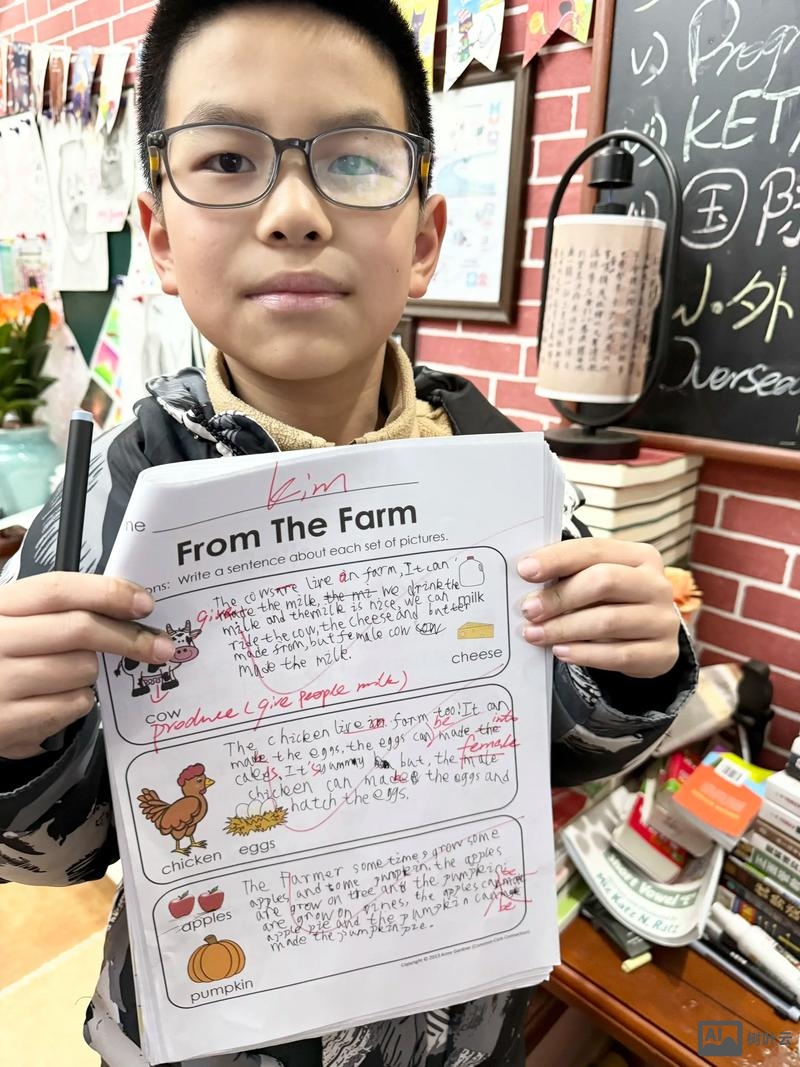 Progr
KET
国际
小外
Oversea
Kim
From The Farm
ons: Write a sentence about each set of pictures.
The cows are live in farm, It can
give
made the milk, the mi we drink the
milk and the milk is nice, we can
ride the cow, the cheese and butter
made from, but female cow cow
made the milk.
milk
cheese
cow
produce (give people milk)
The chicken live in farm too! It can
be into
made the eggs, the eggs can made the
female
cakes, It's yummy but, the male
chicken can made the eggs and
hatch the eggs.
chicken eggs
The Farmer sometimes grow some
apples and some pumpkin, the apples
are grow on tree and the pumpkin
are grow on vines, the apples can made
be
apple pie and the pumpkin can
be
made the pumpkin pie.
apples
pumpkin
Copyright © 2013 Anne Gardner (Common Core Connection)
Short Vowel
Miss Kate N. Ratz
树叶云